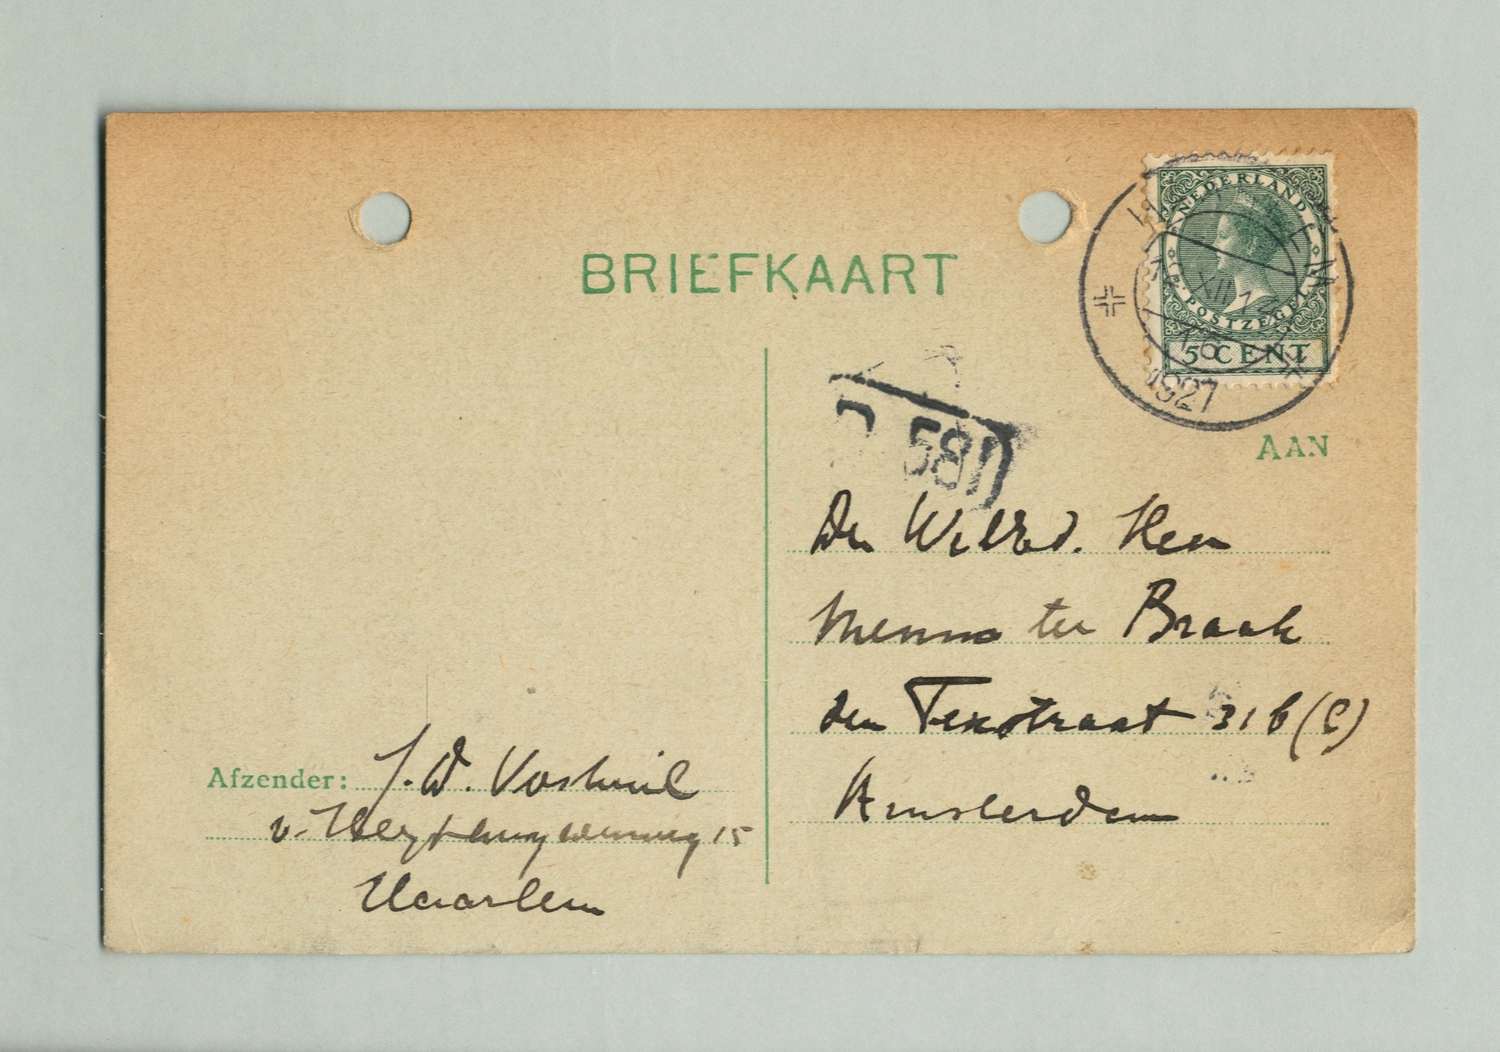 BRIEFKAART
NEDERLAND
POSTZEGEL
5 CENT
XII
1927
581
AAN
Den Weled. Heer
Menno ter Braak
den Texstraat 31 b (C)
Amsterdam
Afzender: J. W.
v. 15
Haarlem